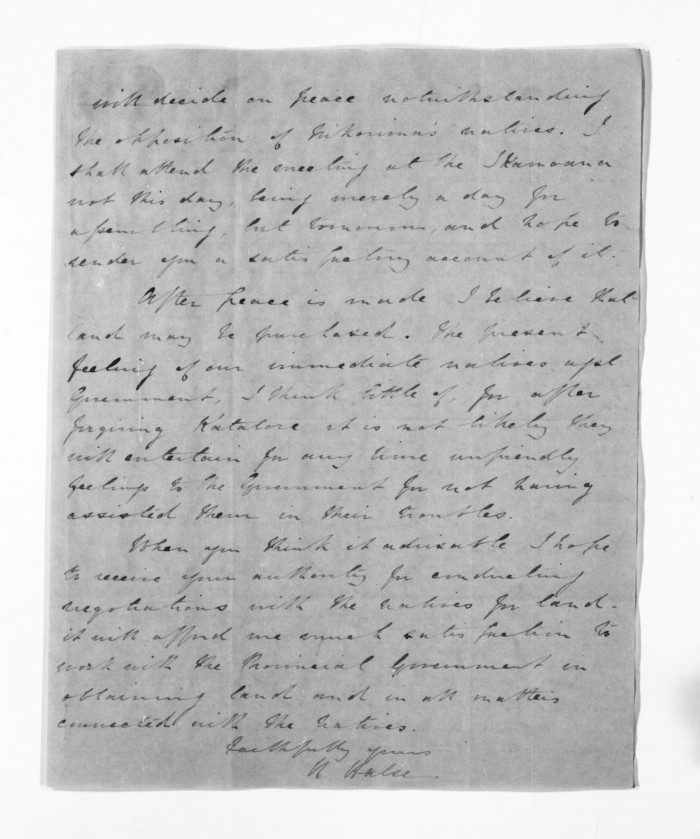 will decide on peace notwithstanding
the opposition of Nikorima's natives. I
shall attend the meeting at the Ikamoana
not this day, being merely a day for
assembling, but tomorrow, and hope to
render you a satisfactory account of it.
After peace is made I believe that
land may be purchased. The present
feeling of our immediate natives agst
Government, I think little of, for after
forgiving Katatore it is not likely they
will entertain for any time unfriendly
feelings to the Government for not having
assisted them in their troubles.
When you think it advisable I hope
to receive your authority for conducting
negotiations with the natives for land -
it will afford me much satisfaction to
work with the Provincial Government in
obtaining land and in all matters
connected with the natives.
Faithfully yours
H Halse.